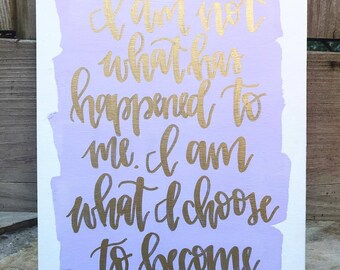 I am not
what has
happened to
me. I am
what I choose
to become